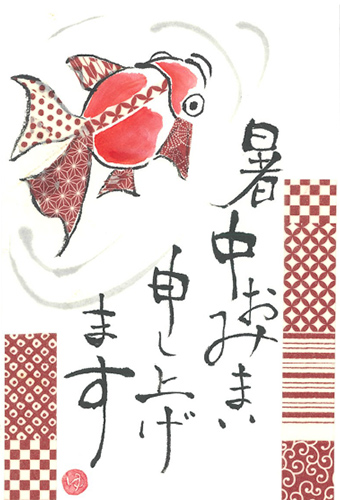 暑中おみまい
申し上げ
ます